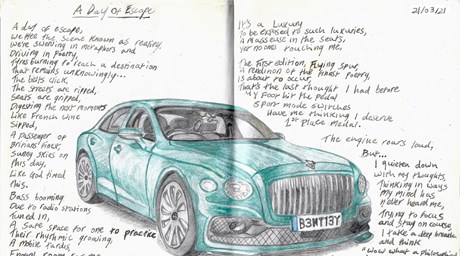 A Day Of Escape
21/03/21
A day of escape,
We flee the scene known as reality.
We're swerving in metaphors and
Driving in Poetry,
Tyres burning to reach a destination
That remains unknowingly...
The belts click,
The streets are ripped,
Seats are gripped,
Digesting the last moments
Like French wine
Sipped,
A passenger of
Britains' finest,
Sunny skies on
This day,
Like God timed
This.
Bass booming
Due to radio stations
Tuned in,
A safe space for one to practice
Their rhythmic grooving,
A mobile tardis,
It's a Luxury
To be exposed to such luxuries,
A Massage in the seats,
Yet no one touching me,
The First edition, Flying Spur,
A rendition of the finest Poetry,
Is about to occur,
That's the last thought I had before
My Foot hit the pedal
Sport mode switches
Have me thinking I deserve
1st Place medal.
The engine roars loud,
But...
I quieten down
With my thoughts,
Thinking in ways
My mind has
never heard me,
Trying to focus
and stay on course,
I take a deep breathe
and think
"Wow what a philosophical
B3NTl3Y